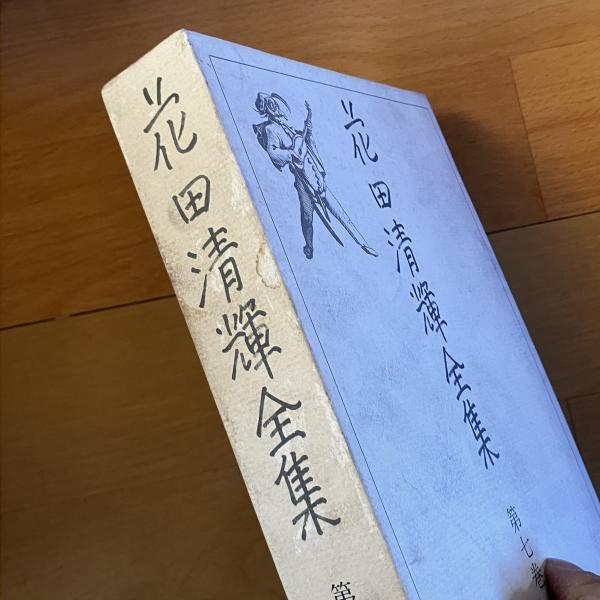 花田清輝全集
第
花田清輝全集
第七巻